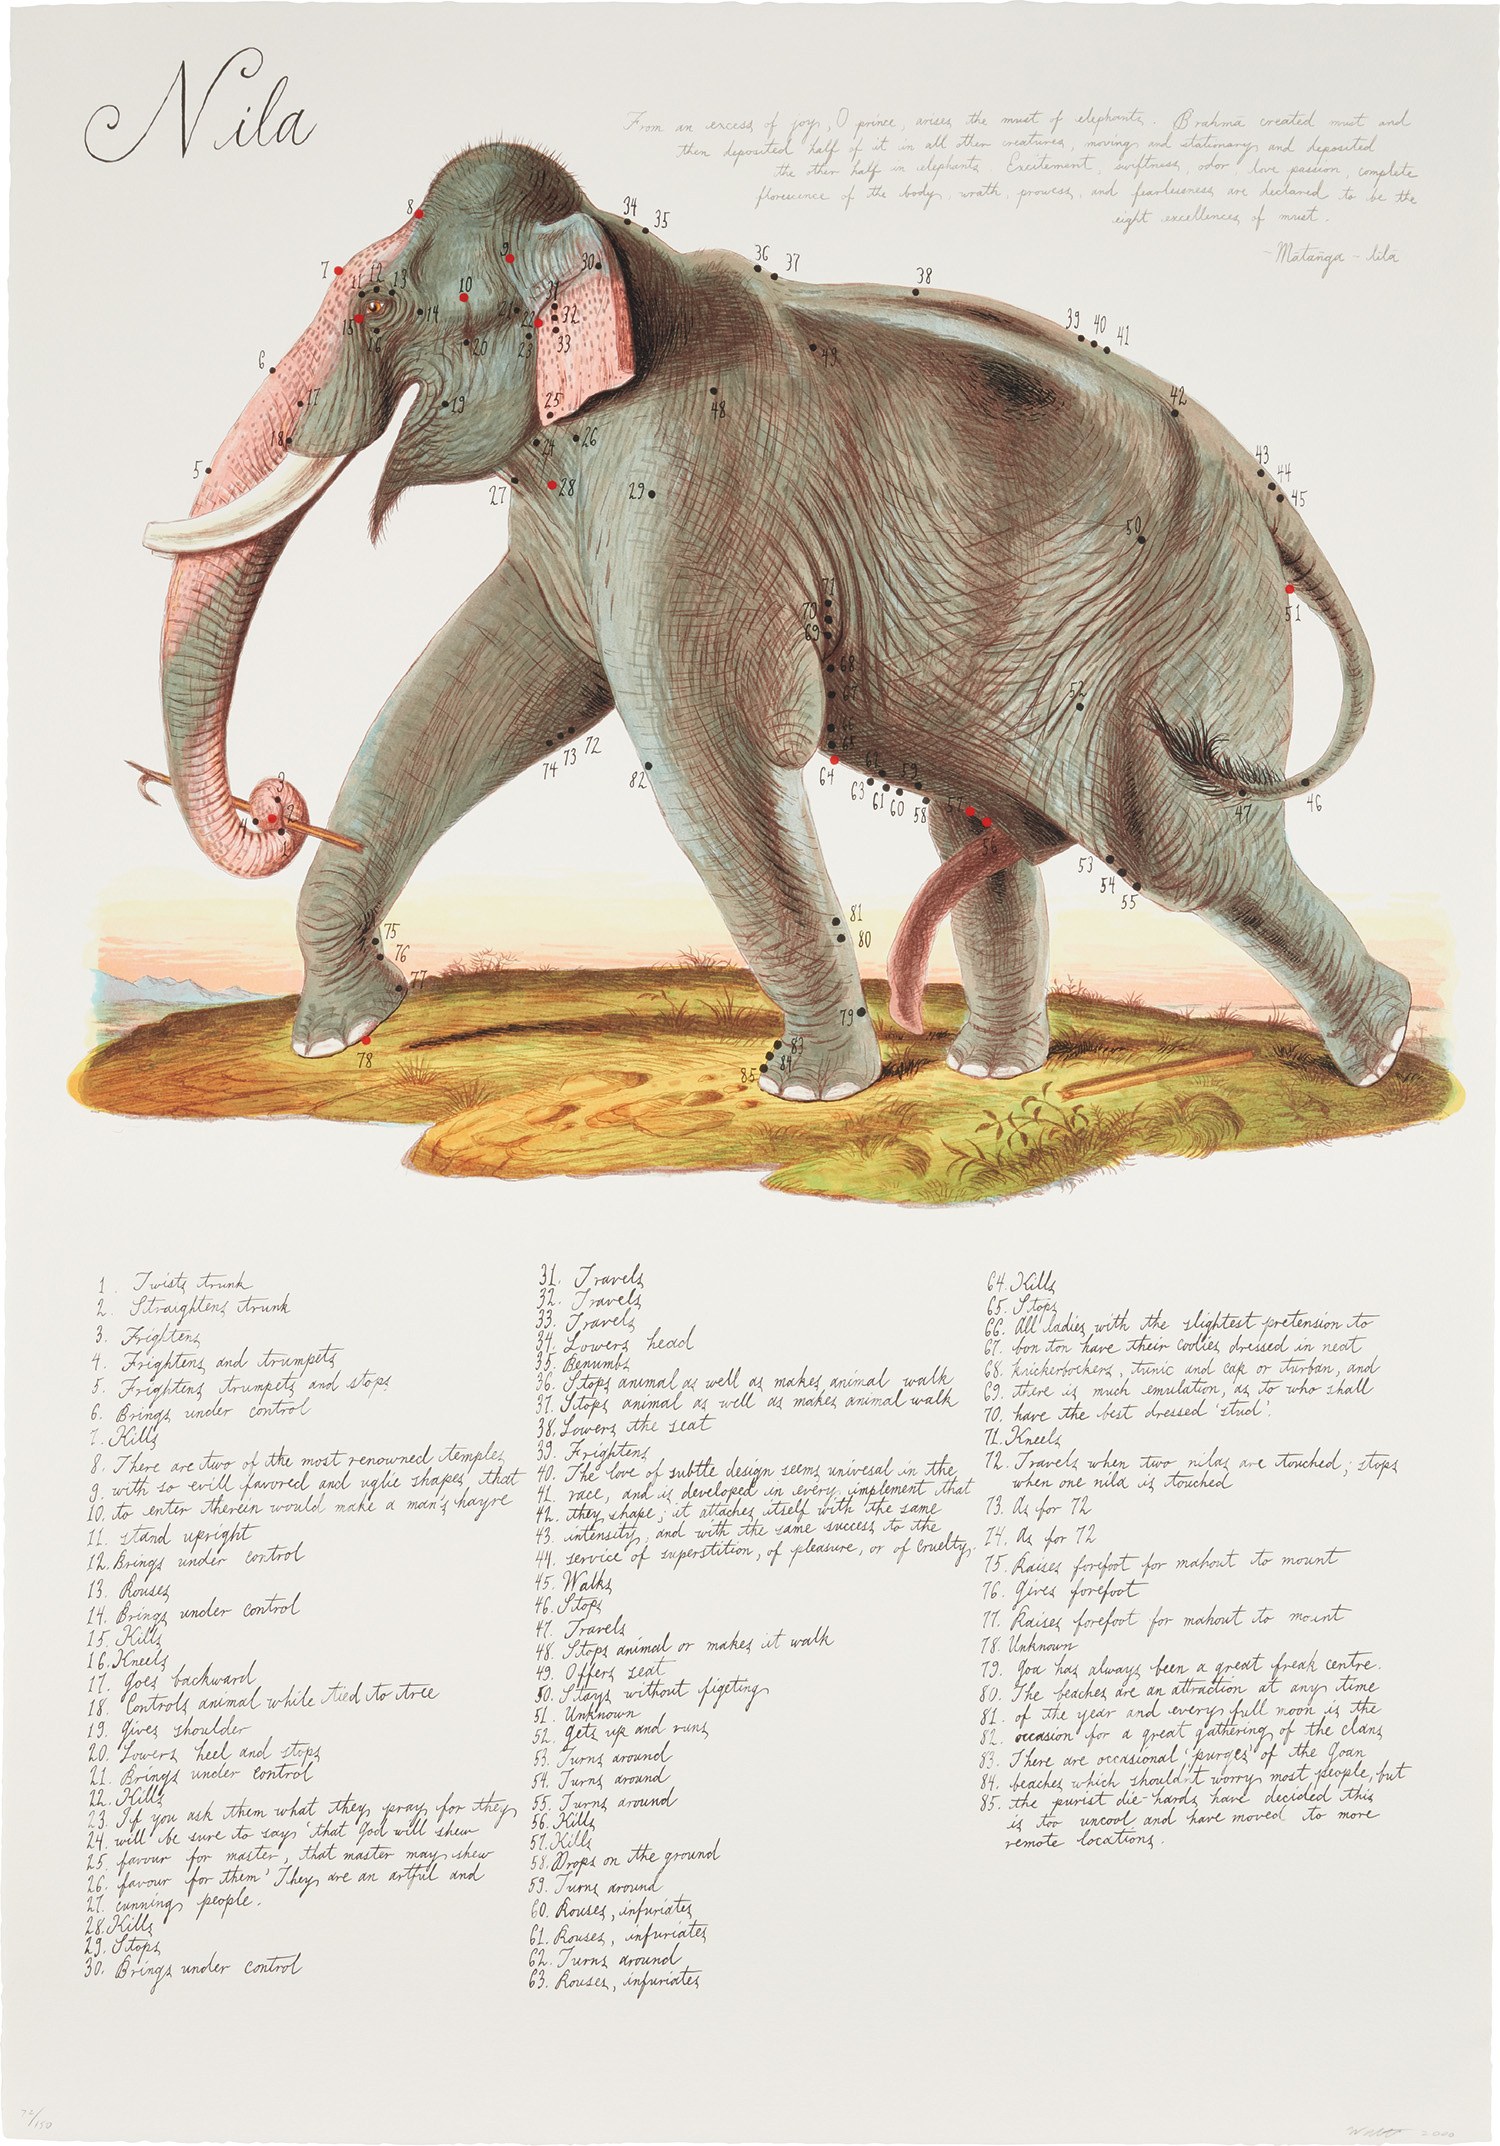 Nila
From an excess of joy, O prince, arises the must of elephants. Brahma created must and
then deposited half of it in all other creatures, moving and stationary and deposited
the other half in elephants. Excitement, swiftness, odor, love passion, complete
florescence of the body, wrath, prowess, and fearlessness are declared to be the
eight excellences of must.
- Matanga - lila
1. Twists trunk
2. Straightens trunk
3. Frightens
4. Frightens and trumpets
5. Frightens trumpets and stops
6. Brings under control
7. Kills
8. There are two of the most renowned temples
9. with so evill favored and uglie shapes that
10. to enter therein would make a man's hayre
11. stand upright
12. Brings under control
13. Rouses
14. Brings under control
15. Kills
16. Kneels
17. Goes backward
18. Controls animal while tied to tree
19. Gives shoulder
20. Lowers heel and stops
21. Brings under control
22. Kills
23. If you ask them what they pray for they
24. will be sure to say 'that God will shew
25. favour for master, that master may shew
26. favour for them' They are an artful and
27. cunning people.
28. Kills
29. Stops
30. Brings under control
31. Travels
32. Travels
33. Travels
34. Lowers head
35. Benumbs
36. Stops animal as well as makes animal walk
37. Stops animal as well as makes animal walk
38. Lowers the seat
39. Frightens
40. The love of subtle design seems univesal in the
41. race, and is developed in every implement that
42. they shape; it attaches itself with the same
43. intensity, and with the same success to the
44. service of superstition, of pleasure, or of cruelty.
45. Walks
46. Stops
47. Travels
48. Stops animal or makes it walk
49. Offers seat
50. Stays without figeting
51. Unknown
52. Gets up and runs
53. Turns around
54. Turns around
55. Turns around
56. Kills
57. Kills
58. Drops on the ground
59. Turns around
60. Rouses, infuriates
61. Rouses, infuriates
62. Turns around
63. Rouses, infuriates
64. Kills
65. Stops
66. All ladies with the slightest pretension to
67. bon ton have their coolies dressed in neat
68. knickerbockers, tunic and cap or turban, and
69. there is much emulation, as to who shall
70. have the best dressed 'stud'.
71. Kneels
72. Travels when two nilas are touched; stops
when one nila is touched
73. As for 72
74. As for 72
75. Raises forefoot for mahout to mount
76. Gives forefoot
77. Raises forefoot for mahout to mount
78. Unknown
79. Goa has always been a great freak centre.
80. The beaches are an attraction at any time
81. of the year and every full moon is the
82. occasion for a great gathering of the clans
83. There are occasional 'purges' of the Goan
84. beaches which shouldn't worry most people, but
85. the purist die-hards have decided this
is too uncool and have moved to more
remote locations.
72/150
2000